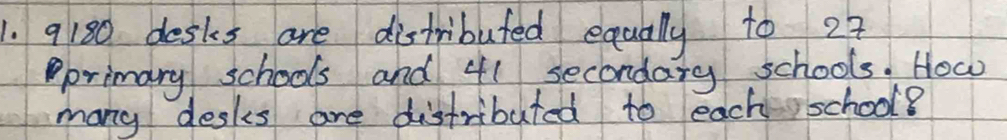 1. 9180 desks are distributed equally to 27
primary schools and 41 secondary schools. How
many desks are distributed to each school?